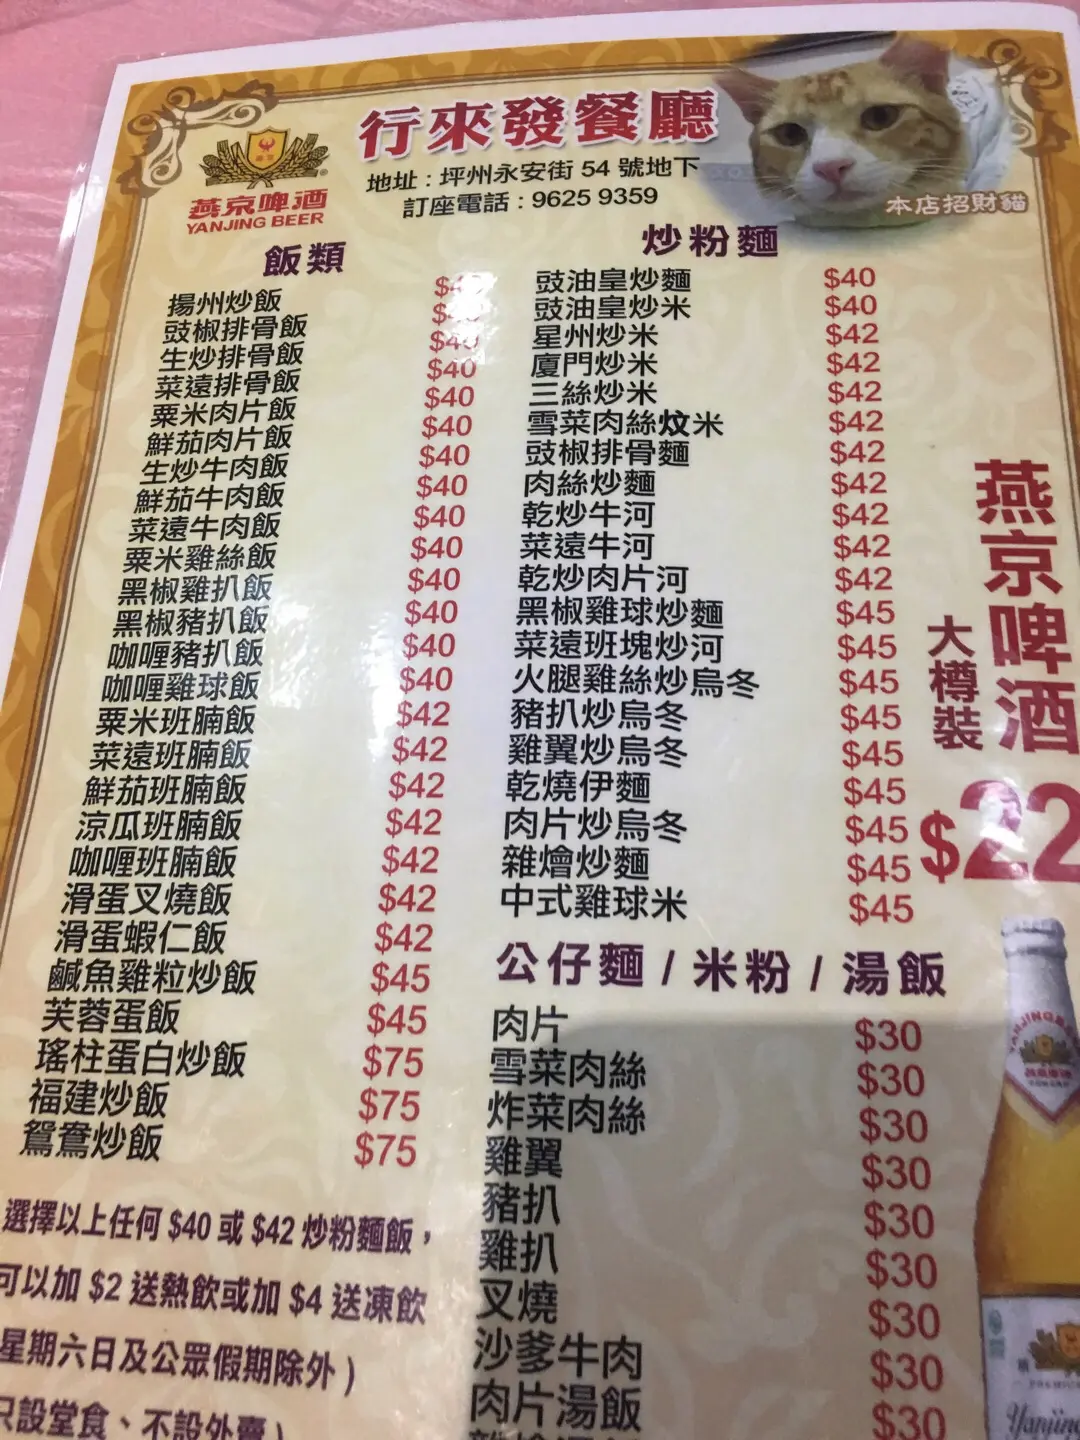 行來發餐廳
地址：坪州永安街 54 號地下
訂座電話：9625 9359
本店招財貓
燕京啤酒
YANJING BEER
飯類
揚州炒飯
豉椒排骨飯
生炒排骨飯 $40
菜遠排骨飯 $40
粟米肉片飯 $40
鮮茄肉片飯 $40
生炒牛肉飯 $40
鮮茄牛肉飯 $40
菜遠牛肉飯 $40
粟米雞絲飯 $40
黑椒雞扒飯 $40
黑椒豬扒飯 $40
咖喱豬扒飯 $40
咖喱雞球飯 $40
粟米班腩飯 $42
菜遠班腩飯 $42
鮮茄班腩飯 $42
涼瓜班腩飯 $42
咖喱班腩飯 $42
滑蛋叉燒飯 $42
滑蛋蝦仁飯 $42
鹹魚雞粒炒飯 $45
芙蓉蛋飯 $45
瑤柱蛋白炒飯 $75
福建炒飯 $75
鴛鴦炒飯 $75
選擇以上任何 $40 或 $42 炒粉麵飯，
可以加 $2 送熱飲或加 $4 送凍飲
星期六日及公眾假期除外）
只設堂食、不設外賣）
炒粉麵
豉油皇炒麵 $40
豉油皇炒米 $40
星州炒米 $42
廈門炒米 $42
三絲炒米 $42
雪菜肉絲炆米 $42
豉椒排骨麵 $42
肉絲炒麵 $42
乾炒牛河 $42
菜遠牛河 $42
乾炒肉片河 $42
黑椒雞球炒麵 $45
菜遠班塊炒河 $45
火腿雞絲炒烏冬 $45
豬扒炒烏冬 $45
雞翼炒烏冬 $45
乾燒伊麵 $45
肉片炒烏冬 $45
雜燴炒麵 $45
中式雞球米 $45
公仔麵 / 米粉 / 湯飯
肉片 $30
雪菜肉絲 $30
炸菜肉絲 $30
雞翼 $30
豬扒 $30
雞扒 $30
叉燒 $30
沙爹牛肉 $30
肉片湯飯 $30
燕京啤酒
大樽裝
$22